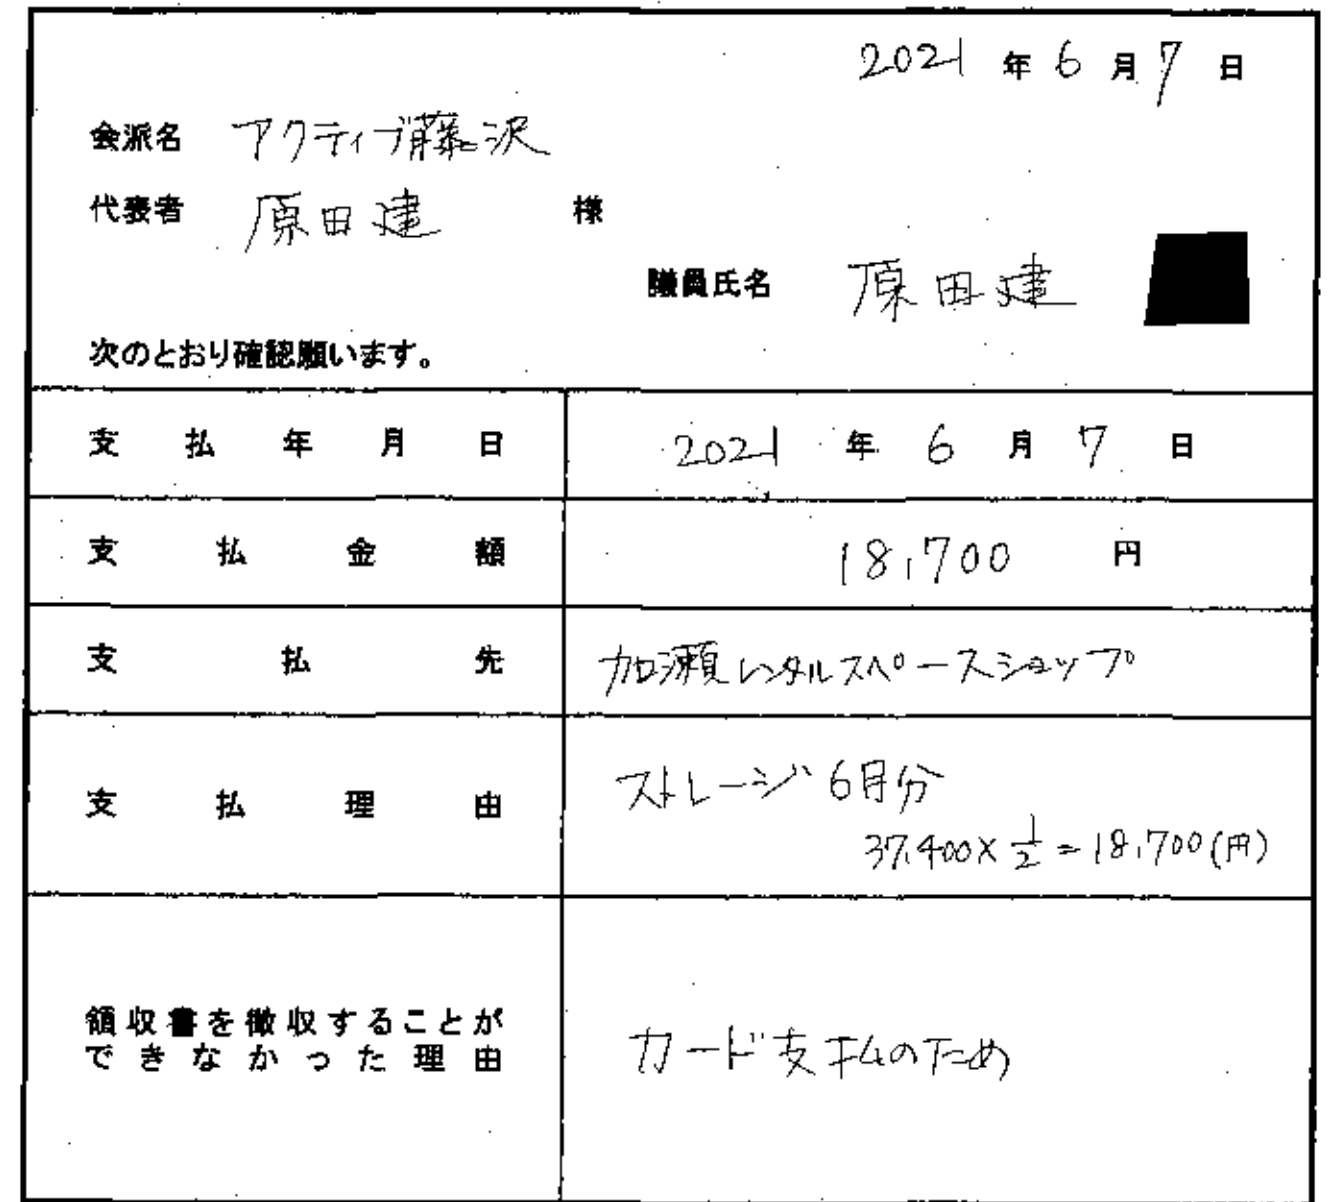 2021 年 6 月 7 日
会派名 アクティブ藤沢
代表者 原田建 様
議員氏名 原田建
次のとおり確認願います。
支払年月日 2021 年 6 月 7 日
支払金額 18,700 円
支払先 加瀬レンタルスペースショップ
支払理由 ストレージ 6月分
37,400×1/2=18,700(円)
領収書を徴収することが
できなかった理由 カード支払のため